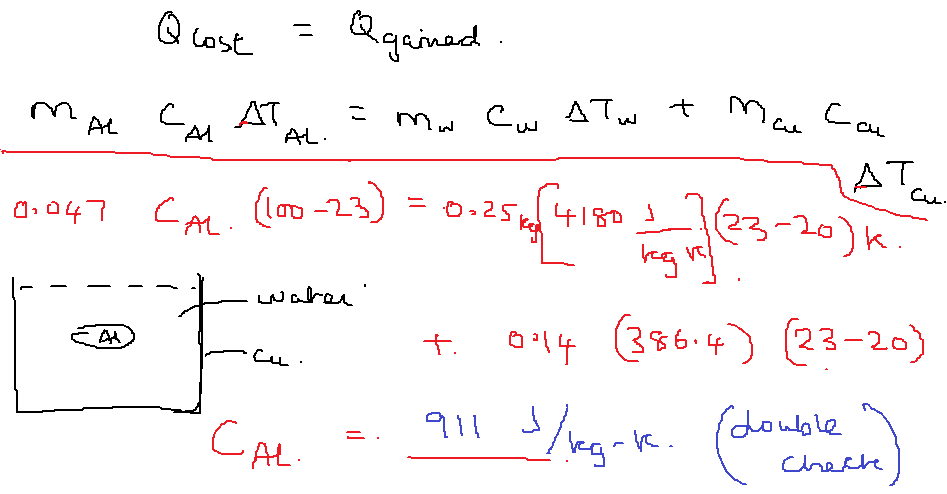 Q lost = Q gained.
m Al C Al ΔT Al. = m w C w ΔT w + m cu C cu
ΔT cu.
0.047 C AL. (100-23) = 0.25 kg [4180 J/kg K] (23-20) K.
water
Al
cu.
+. 0.14 (386.4) (23-20)
C AL. =. 911 J/kg-K. (double
check)